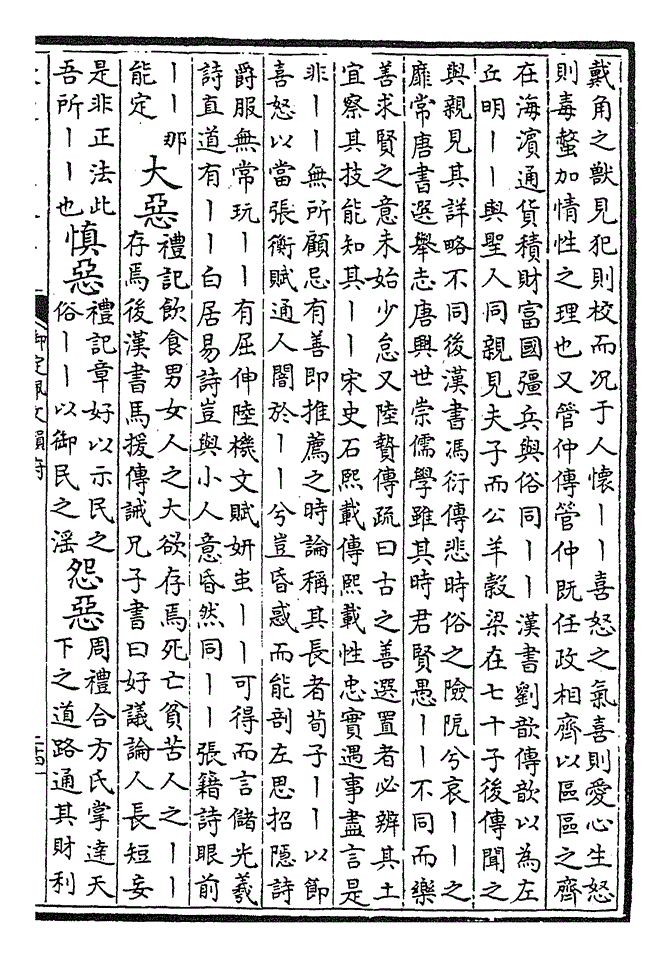 戴角之獸見犯則校而况于人懷丨丨喜怒之氣喜則愛心生怒
則毒螫加情性之理也又管仲傳管仲既任政相齊以區區之齊
在海濱通貨積財富國彊兵與俗同丨丨漢書劉歆傳歆以為左
丘明丨丨與聖人同親見夫子而公羊穀梁在七十子後傳聞之
與親見其詳略不同後漢書馮衍傳悲時俗之險阸兮哀丨丨之
靡常唐書選舉志唐興世崇儒學雖其時君賢愚丨丨不同而樂
善求賢之意未始少怠又陸贄傳疏曰古之善選置者必辨其土
宜察其技能知其丨丨宋史石熙載傳熙載性忠實遇事盡言是
非丨丨無所顧忌有善即推薦之時論稱其長者荀子丨丨以節
喜怒以當張衡賦通人闇於丨丨兮豈昏惑而能剖左思招隱詩
爵服無常玩丨丨有屈伸陸機文賦妍蚩丨丨可得而言儲光羲
詩直道有丨丨白居易詩豈與小人意昏然同丨丨張籍詩眼前
丨丨那
能定
大惡
禮記飲食男女人之大欲存焉死亡貧苦人之丨丨
存焉後漢書馬援傳誡兄子書曰好議論人長短妄
是非正法此
吾所丨丨也
慎惡
禮記章好以示民之
俗丨丨以御民之淫
怨惡
周禮合方氏掌達天
下之道路通其財利
御定佩文韻府